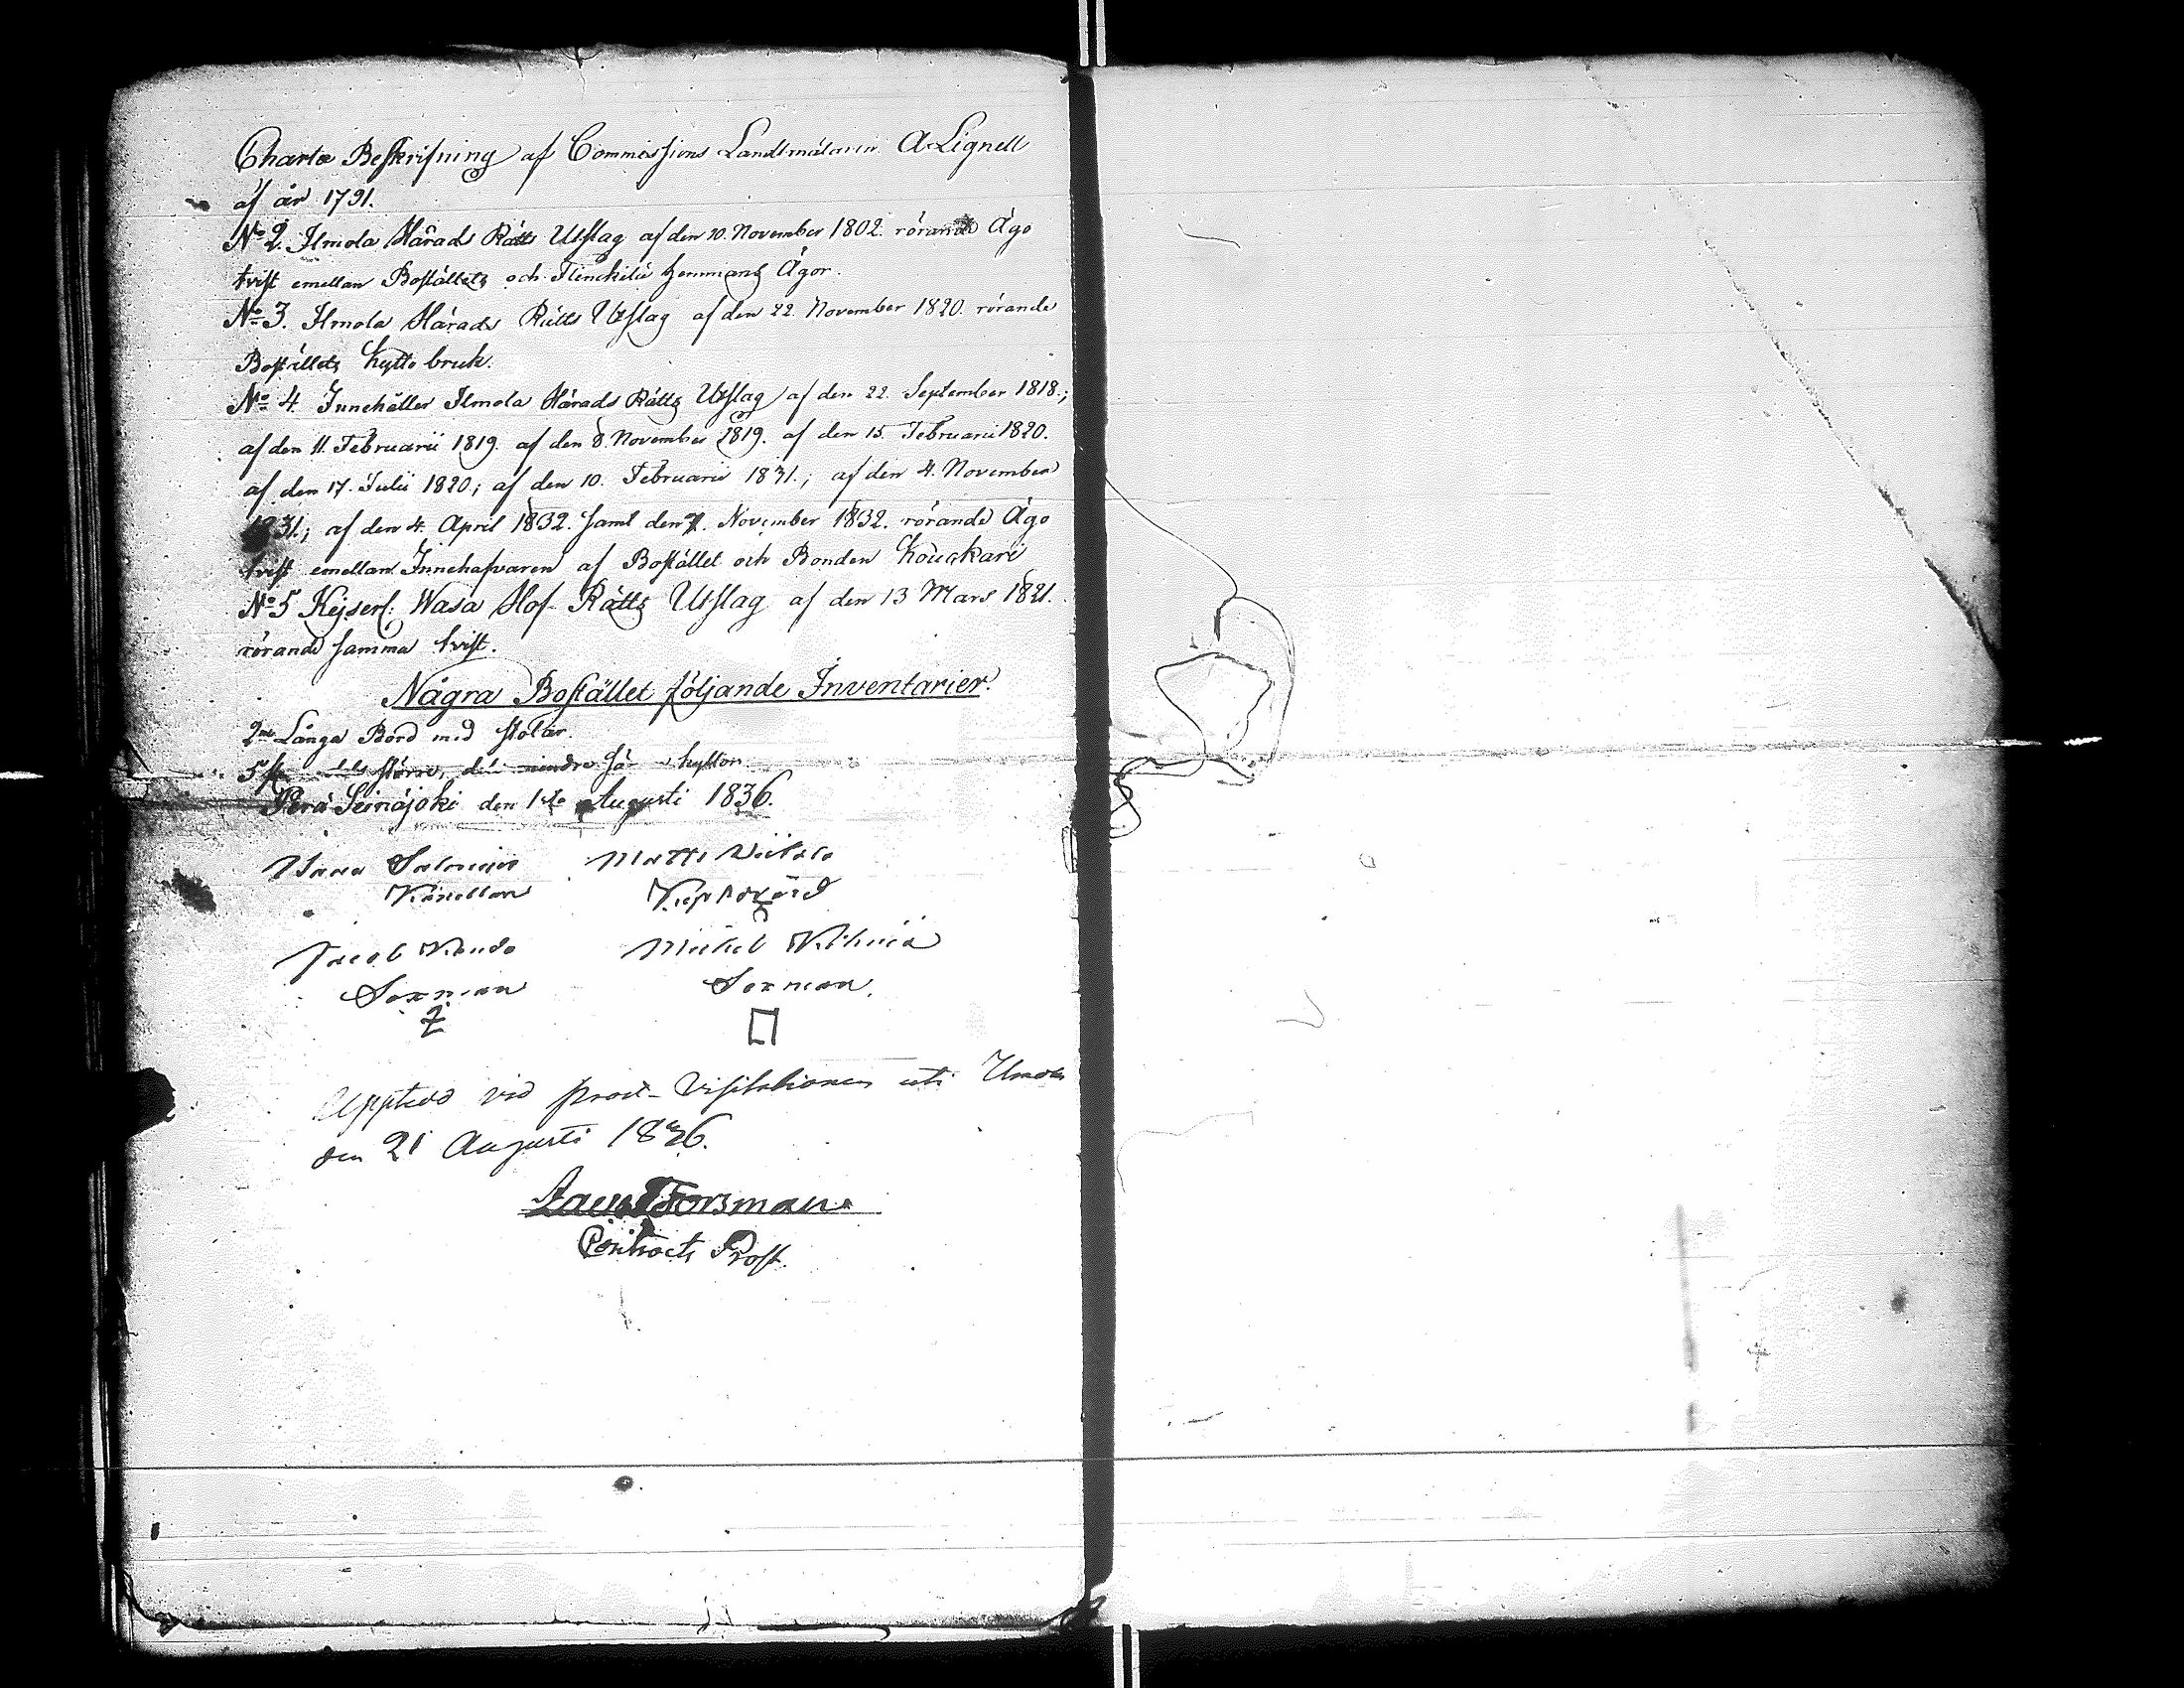 Charta Beskrifning af Commissions Landtmätaren A Lignell
af år 1791.
No 2. Ilmola Härads Rätts Utslag af den 10. November 1802. rörande Ägo
tvist emellan Boställets och Flinckilä hemmans Ägor.
No 3. Ilmola Härads Rätts Utslag af den 22. November 1820. rörande
Boställets kytto bruk.
No 4. Innehåller Ilmola Härads Rätts Utslag af den 22. September 1818.;
af den 11. Februarii 1819. af den 8. November 1819. af den 15. Februarii 1820.
af den 17. Julii 1820; af den 10. Februarii 1831.; af den 4. November
1831.; af den 4. April 1832. samt den 7. November 1832. rörande Ägo
tvist emellan Innehafvaren af Bostället och Bonden Kouckari
No 5 Kejserl: Wasa Hof-Rätts Utslag af den 13 Mars 1821.
rörande samma tvist.
Några Bostället följande Inventarier.
2ne Långa Bord med stolar.
5 st större, mindre hyllor.
Perä Seinäjoki den 1ste Augusti 1836.
Matts
Jacob
Michel
Sexman
Sexman.
Upptedd vid prost-Visitationen uti Ilmola
den 21 Augusti 1836.
Forsman
Contracts Prost.